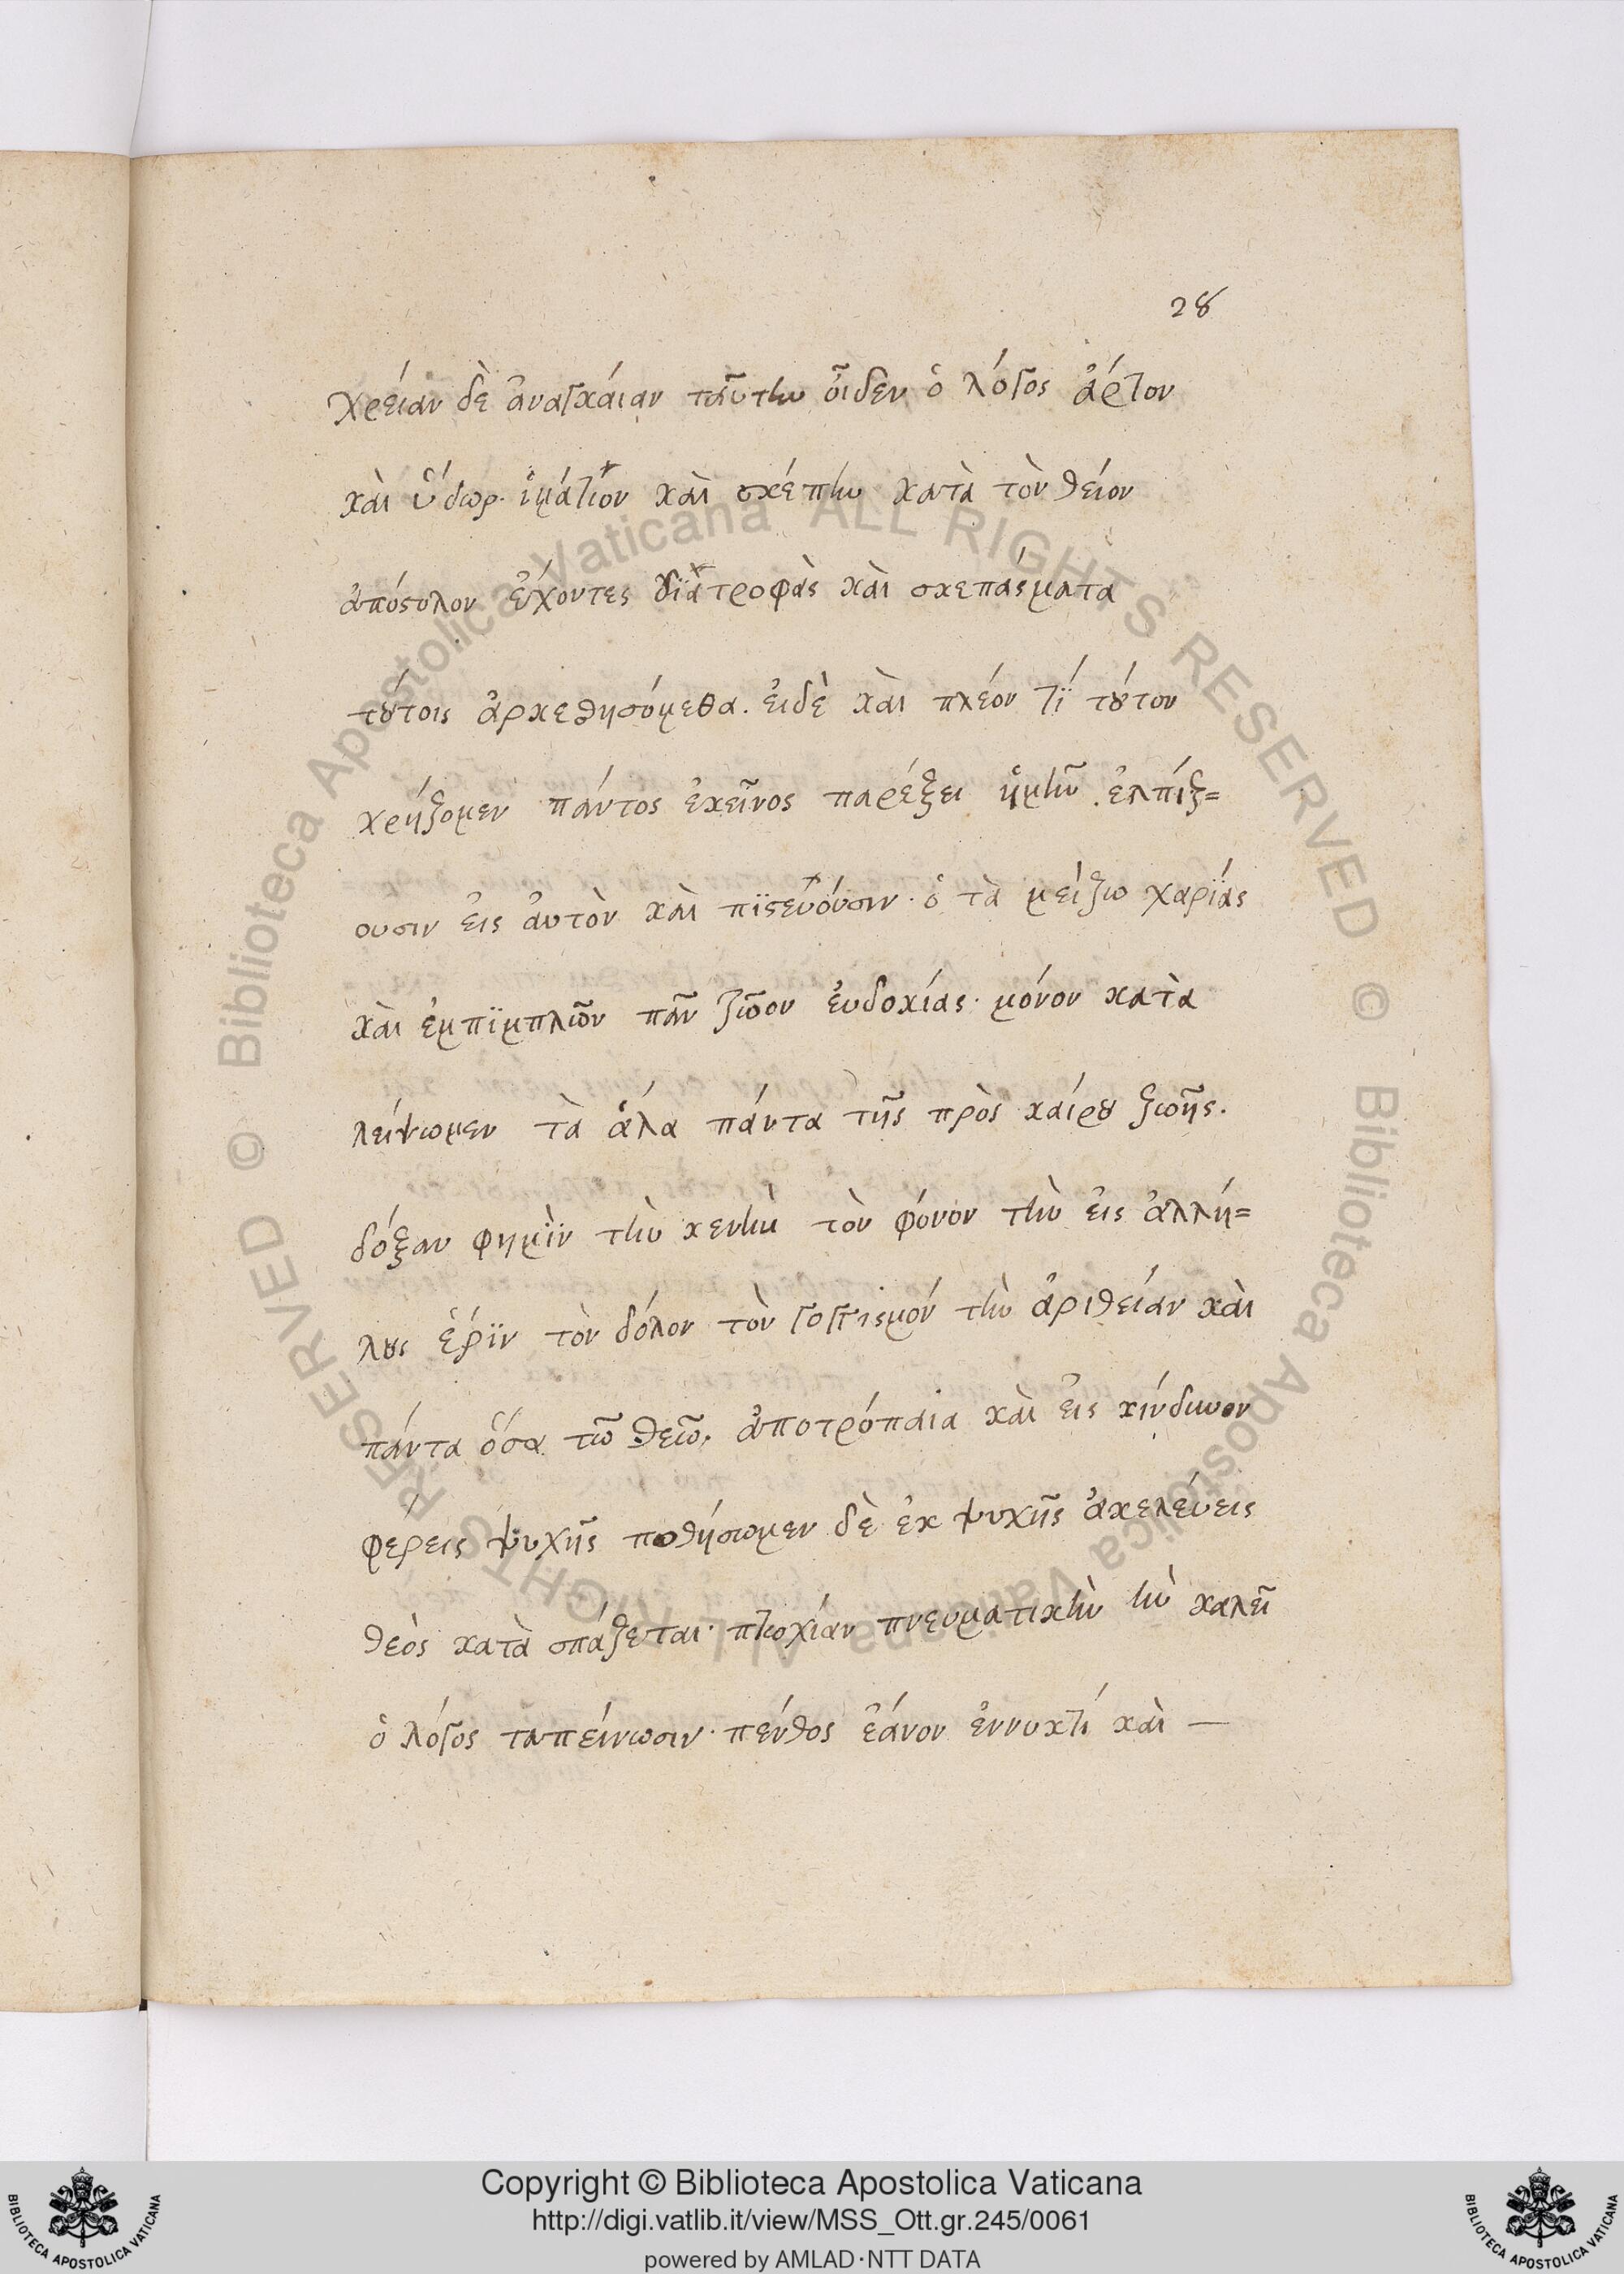 28
χρείαν δὲ ἀναγκάιαν ταῦτην οἶδεν ὁ λόγος ἄρτον
κὰι ὕδωρ· ἱμάτιον κὰι σκέπην κατὰ τὸν θεῖον
ἀπόστολον ἔχοντες διατροφὰς κὰι σκεπάσματα
τούτοις ἀρκεθησόμεθα. ἐιδὲ κὰι πλέον τί τούτον
χρήζομεν πάντος ἐκεῖνος παρέξει ἡμῖν. ἐλπίζ=
ουσιν ἐις ἀυτὸν κὰι πϊστευόυσιν· ὁ τὰ μείζω χαρϊάς
κὰι ἐμπϊμπλῶν πᾶν ζῶον ἐυδοκίας· μόνον κατὰ
λείψωμεν τὰ ἄλα πάντα τῆς πρὸς κάιρου ζωῆς.
δόξαν φημὶν τὴν κενὴν τὸν φόνον τὴν ἐις ἀλλή=
λους ἔρϊν τὸν δόλον τὸν γογγισμόν τὴν ἀριθείαν κὰι
πάντα ὅσα τῶ θεῶ, ἀποτρόπαια κὰι ἐις κίνδυνον
φέρεις ψυχῆς ποθήσωμεν δὲ ἐκ ψυχῆς ἀκελέυεις
θεὸς κατὰ σπάζεται· πτωχίαν πνευματικὴν ἣν καλεῖ
ὁ λόγος ταπείνωσιν· πένθος ἐάνον ἐννυκτί κὰι —
Copyright © Biblioteca Apostolica Vaticana
http://digi.vatlib.it/view/MSS_Ott.gr.245/0061
powered by AMLAD·NTT DATA
BIBLIOTECA APOSTOLICA VATICANA
BIBLIOTECA APOSTOLICA VATICANA
© Biblioteca Apostolica Vaticana ALL RIGHTS RESERVED © Biblioteca Apostolica Vaticana ALL RIGHTS RESERVED